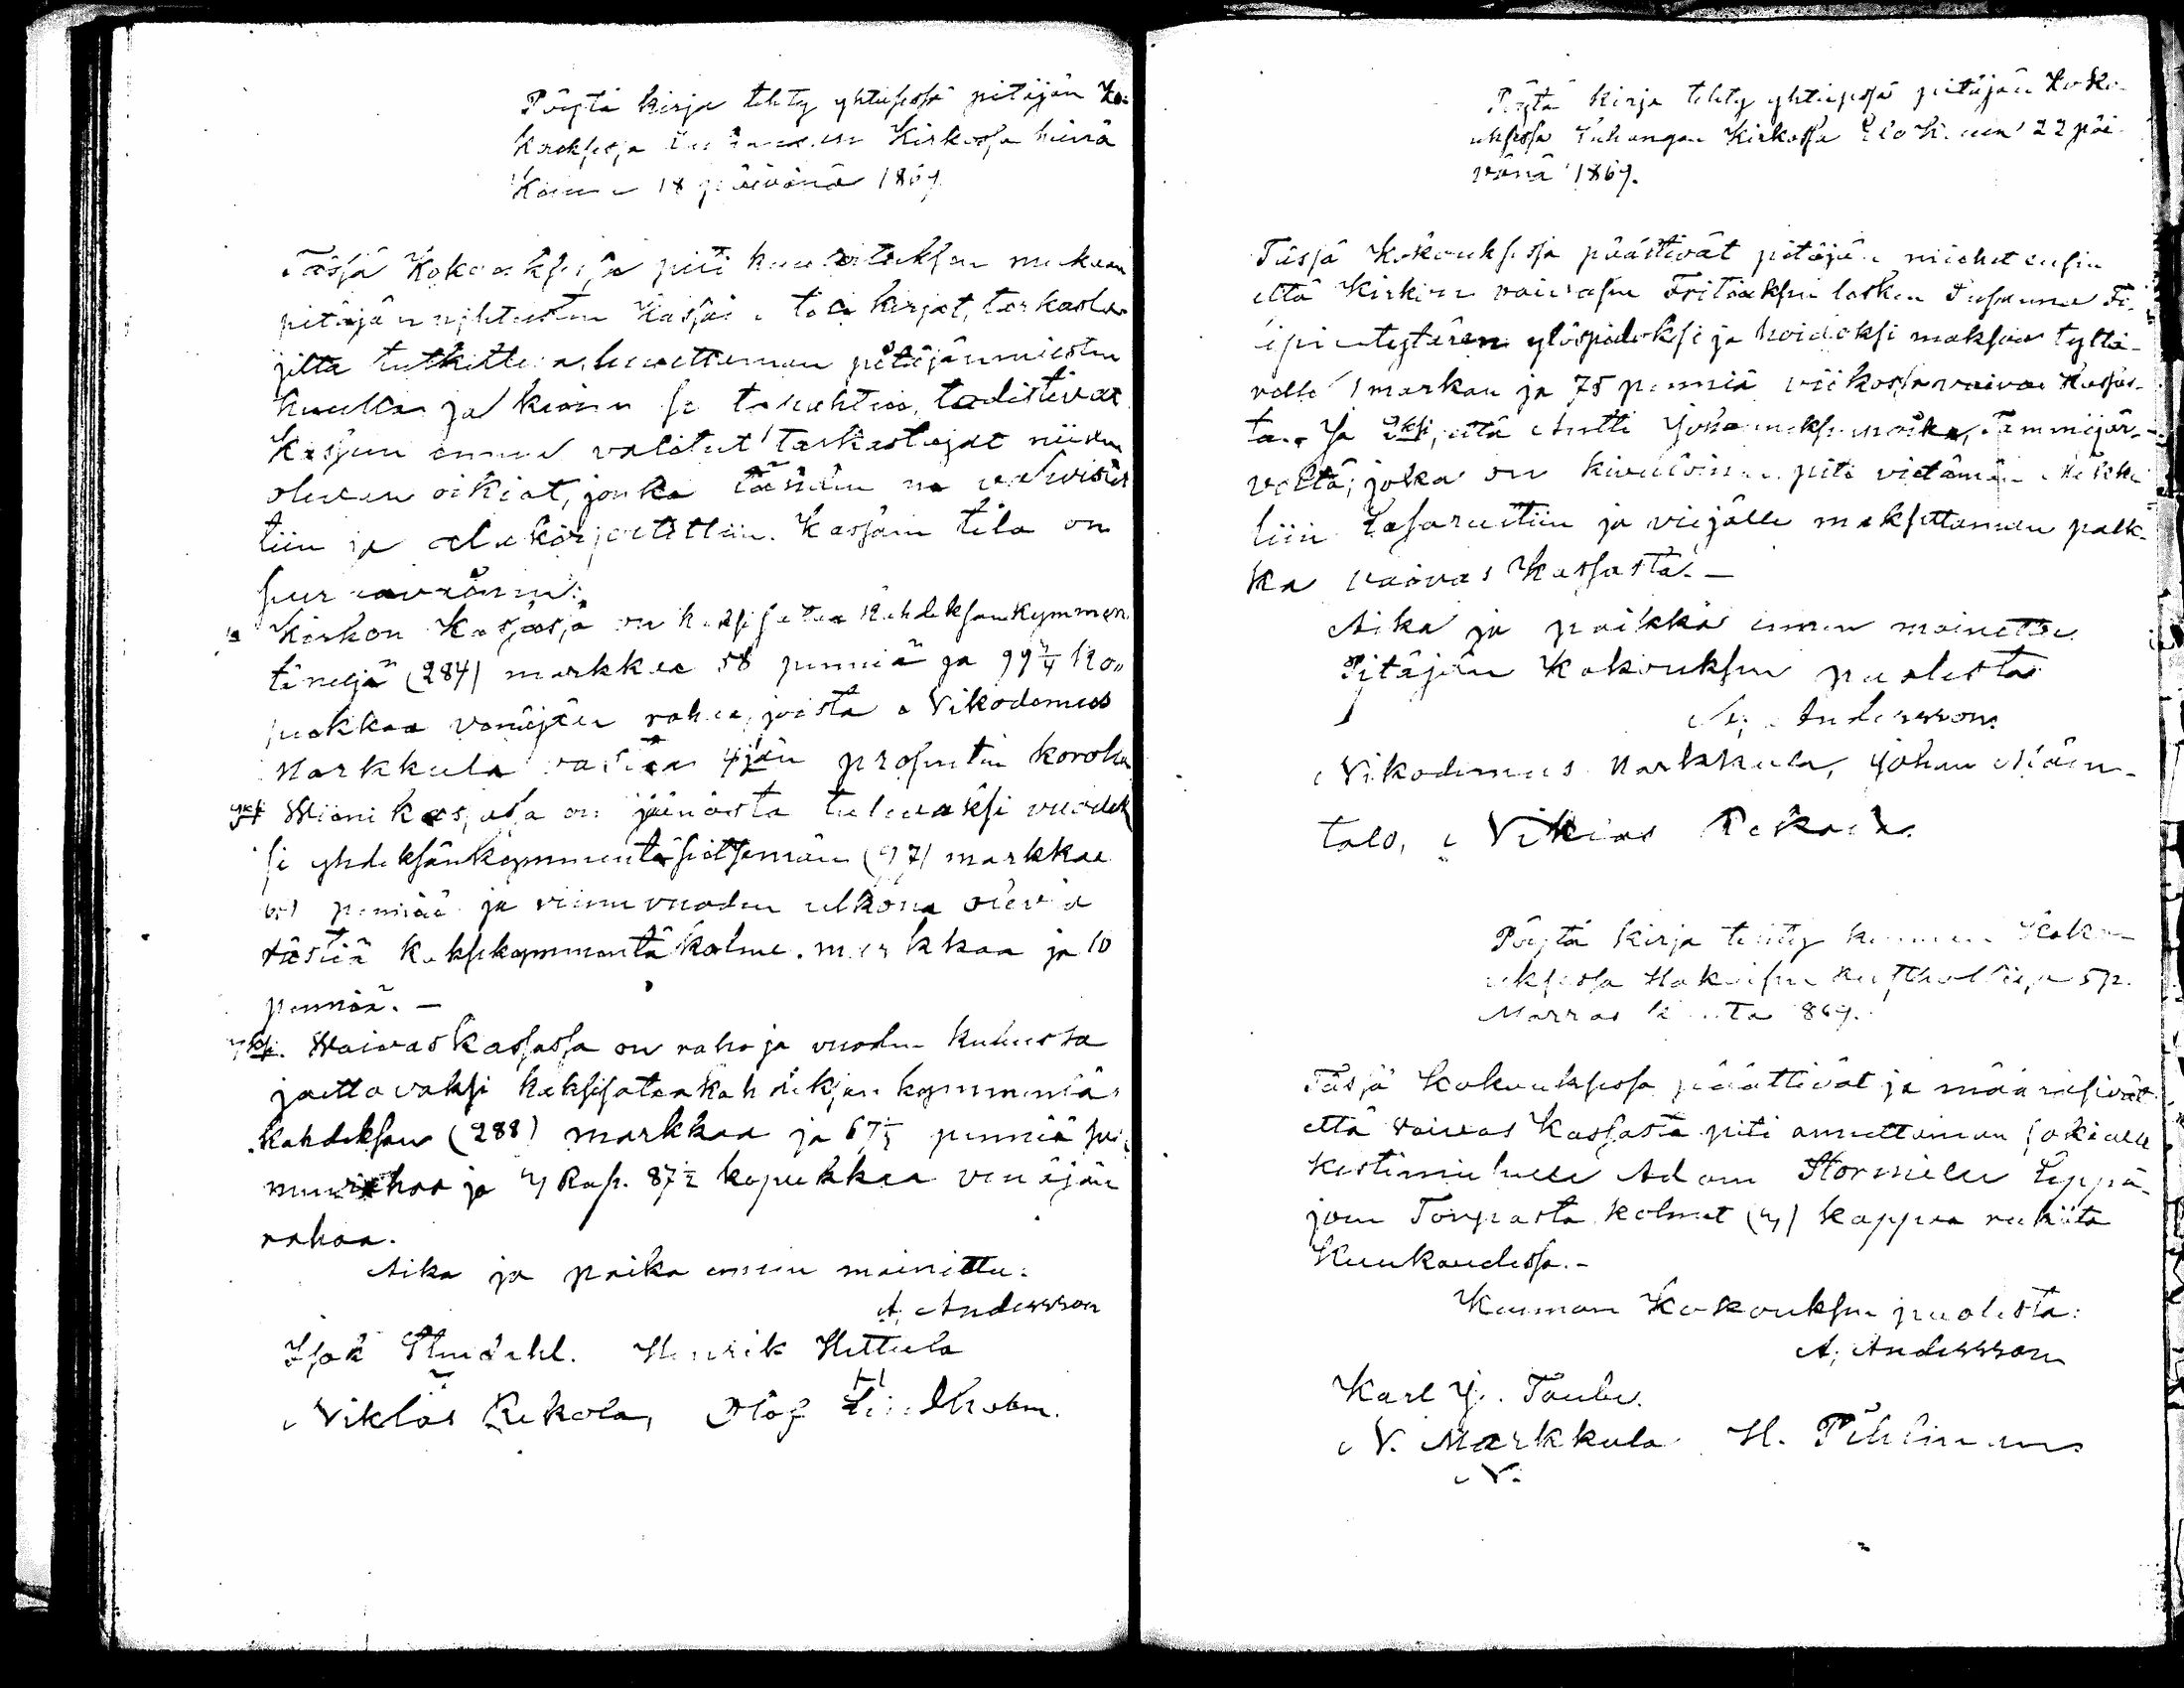 Pöytä kirja tehty yhteisessä pitäjän Ko-
kouksessa Luhangan Kirkossa heinä
Kuun 18 päivänä 1869.
Tässä Kokouksessa piti kuulutuksen mukaan
pitäjän yhteisten Kassain tili kirjat, tarkasta-
jilta tutkittuna, luettaman pitäjänmiesten
kuulla ja kuin se tapahtui, todistivat
Kassan ennen valitut tarkastajat niiden
olevan oikiat, jonka tähden ne vahvistet
tiin ja allekirjoitettiin. Kassain tila on
seuraavainen:
Kirkon Kassassa on kaksisataa kahdeksankymmen
tä neljä (284) markkaa 58 penniä ja 99 1/4 Ko-
pekkaa venäjän rahaa, joista Nikodemus
Markkula vastaa 4jän prosentin korolla
2ksi Wiinikassassa on jäänöstä tulevaksi vuodek
si yhdeksänkymmentäseitsemän (97) markkaa
penniä ja viime vuoden ulkona olevia
rästiä kaksikymmentäkolme markkaa ja 10
penniä. —
3ksi. Waivaskassassa on rahoja vuoden kuluessa
jaettavaksi kaksisataakahdeksan kymmentä-
kahdeksan (288) markkaa ja 67 1/2 penniä Suo-
menrahaa ja 3 Rup. 87 1/2 kopekkaa venäjän
rahaa.
Aika ja paika ennen mainittu:
A. Andersson
Isak Stendahl. Henrik Hettula
Niklas Rekola, Olof Lindholm.
Pöytä kirja tehty yhteisessä pitäjän Koko-
uksessa Luhangan Kirkossa Elo K. uun 22 päi-
vänä 1869.
Tässä Kokouksessa päästivät pitäjän miehet ensin
että Kirkon vaivasen lasken Susanna Fi-
lipintyttären ylöspidoksi ja hoidoksi maksaa tyttä-
relle 1 markan ja 75 penniä viikossa vaivas Kassas-
ta. Ja 2ksi, että Antti Tammijär-
veltä, joka on kivulvinen piti vietämän
liin Lasarettiin ja viejälle maksettaman palk-
ka vaivas Kassasta. —
Aika ja paikka ennen mainettu
Pitäjän Kokouksen puolesta
A. Andersson
Nikodemus Markkula, Johan Mäen-
talo, Niklas Rekola.
Pöytä kirja tehty kunnan Koko-
uksessa 5 p.
Marras k 1869.
Tässä Kokouksessa päättivät ja määräsivät
että vaivas Kassasta piti annettaman sokialle
kestimiehelle Adam Stormille Leppä-
joen Torpasta kolmet (3) kappaa rukiita
Kuukaudessa. -
Kunnan Kokouksen puolesta:
A. Andersson
Karl J. Taube.
N. Markkula H. Pihlman
N.